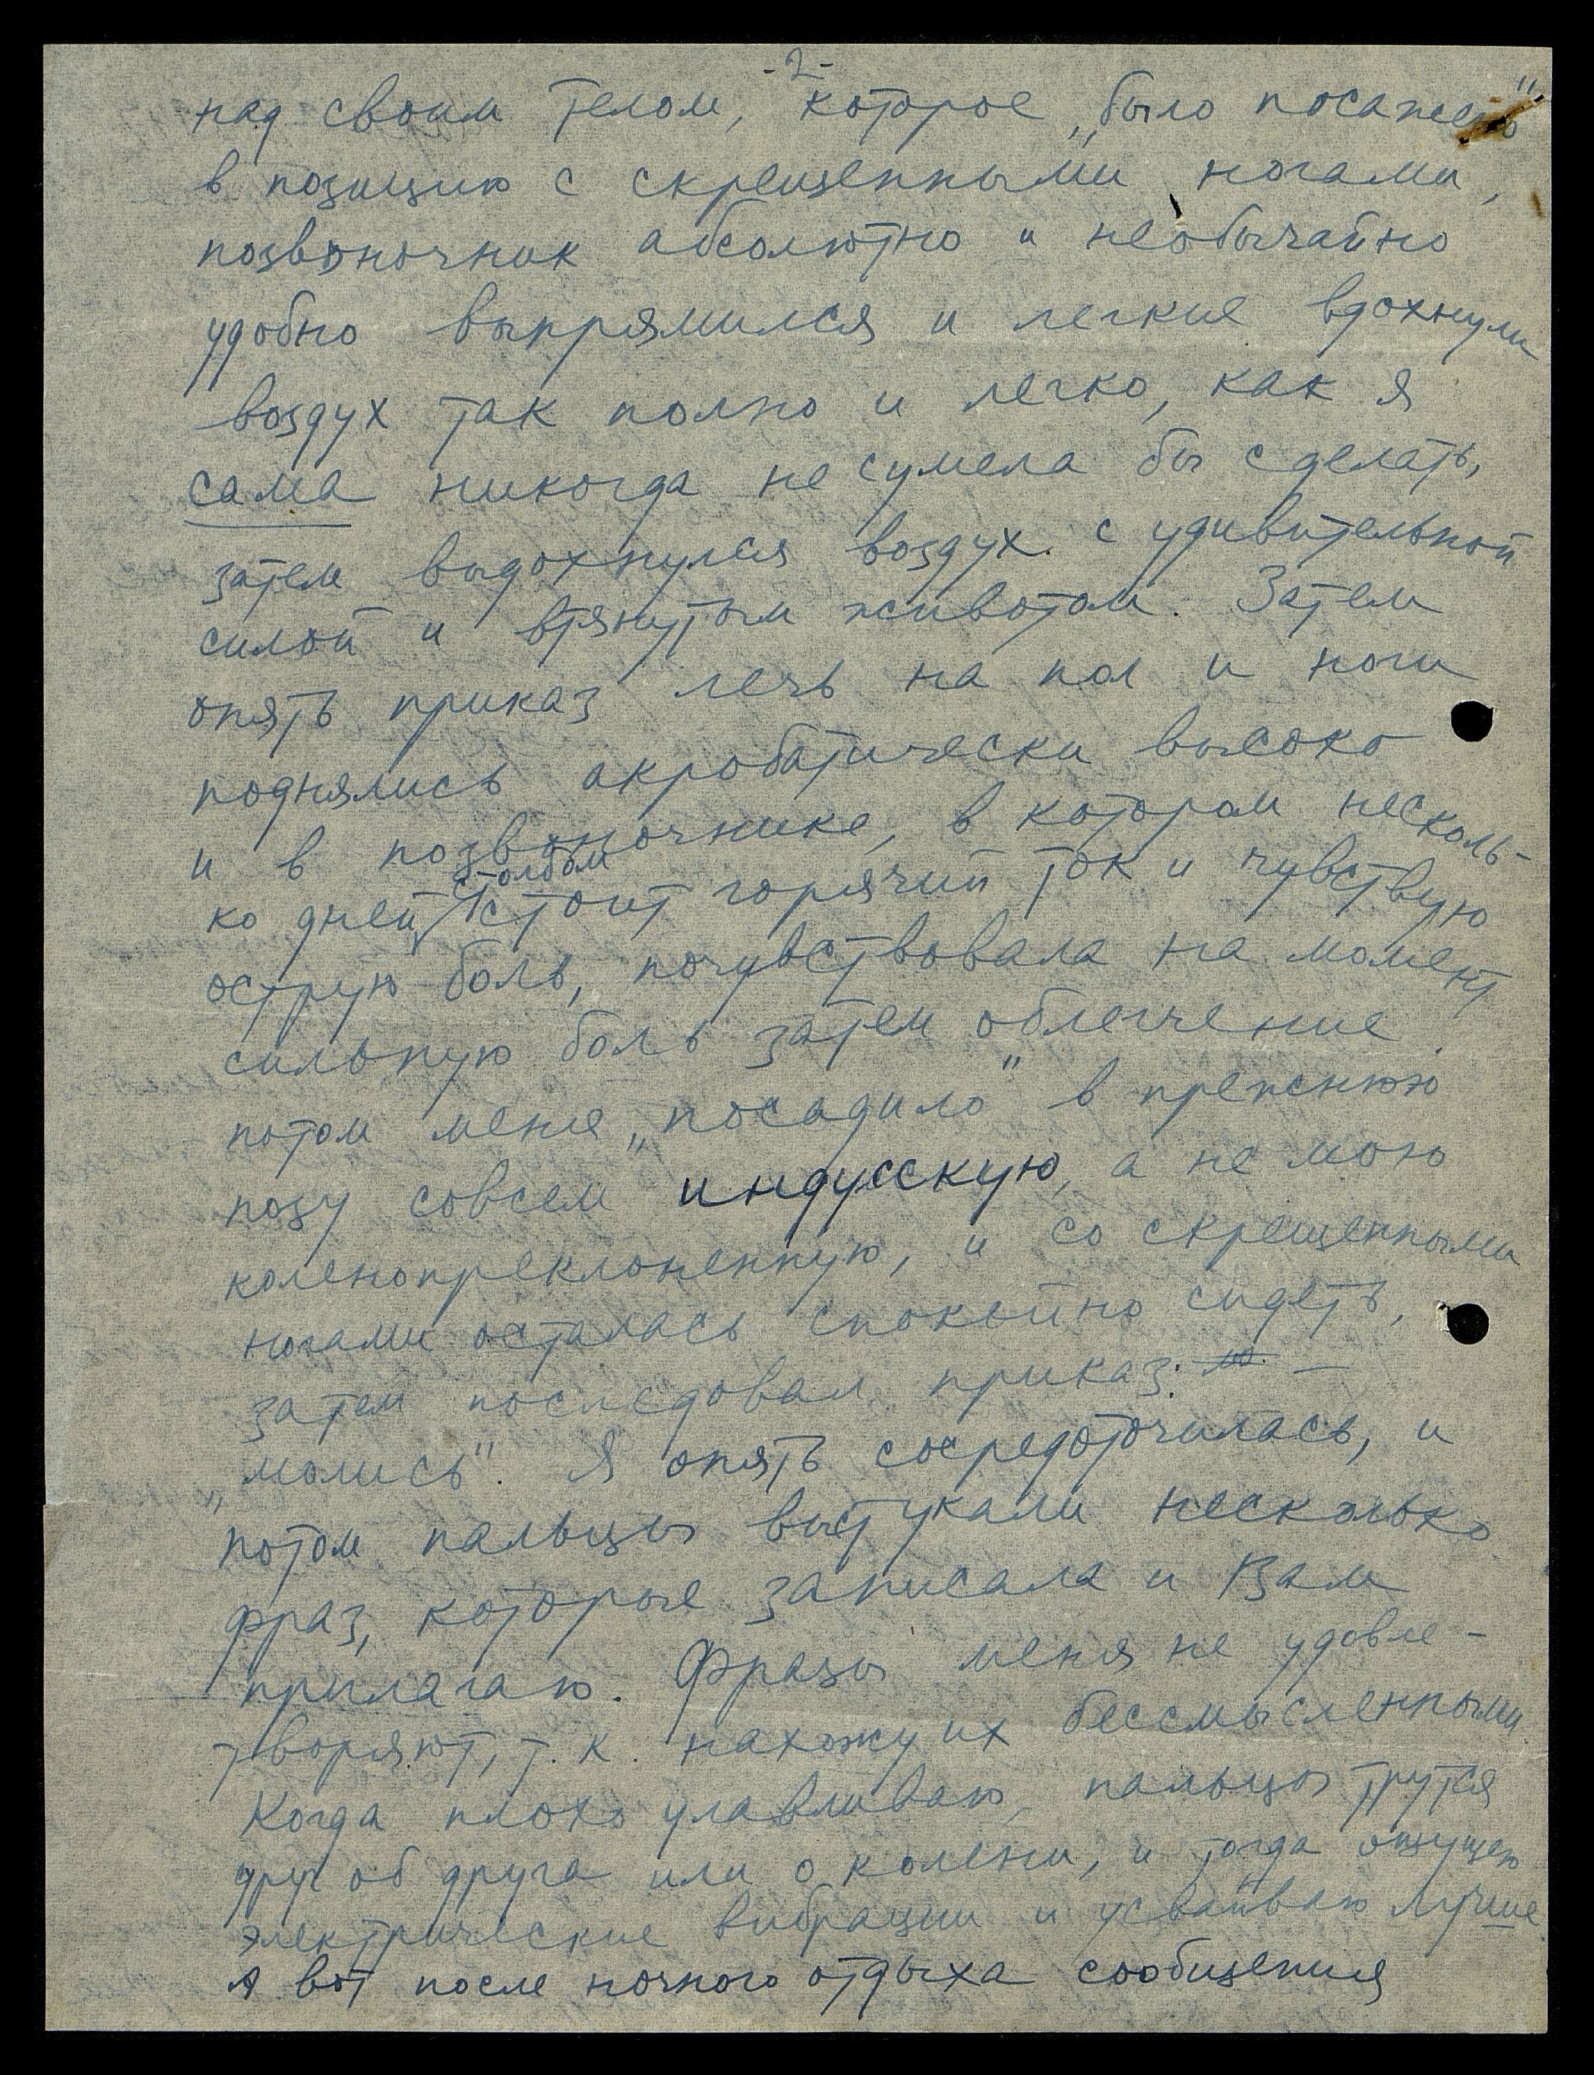 -2-
над своим телом, которое „было посажено"
в позицию с скрещенными ногами,
позвоночник абсолютно и необычайно
удобно выпрямился и легкие вдохнули
воздух так полно и легко, как я
сама никогда не сумела бы сделать,
затем выдохнулся воздух с удивительной
силой и втянутым животом. Затем
опять приказ лечь на пол и ноги
поднялись акробатически высоко
и в позвоночнике, в котором несколь-
ко дней столбом стоит горячий ток и чувствую
острую боль, почувствовала на момент
сильную боль затем облегчение.
потом меня „посадило" в прежнюю
позу совсем индусскую, а не мою
коленопреклоненную, и со скрещенными
ногами осталась спокойно сидеть,
затем последовал приказ: —
„молись". Я опять сосредоточилась, и
потом пальцы выстукали несколько
фраз, которые записала и Вам
прилагаю. Фразы меня не удовле-
творяют, т. к. нахожу их бессмысленными.
Когда плохо улавливаю, пальцы трутся
друг об друга или о колени, и тогда ощущаю
электрические вибрации и усваиваю лучше
А вот после ночного отдыха сообщения